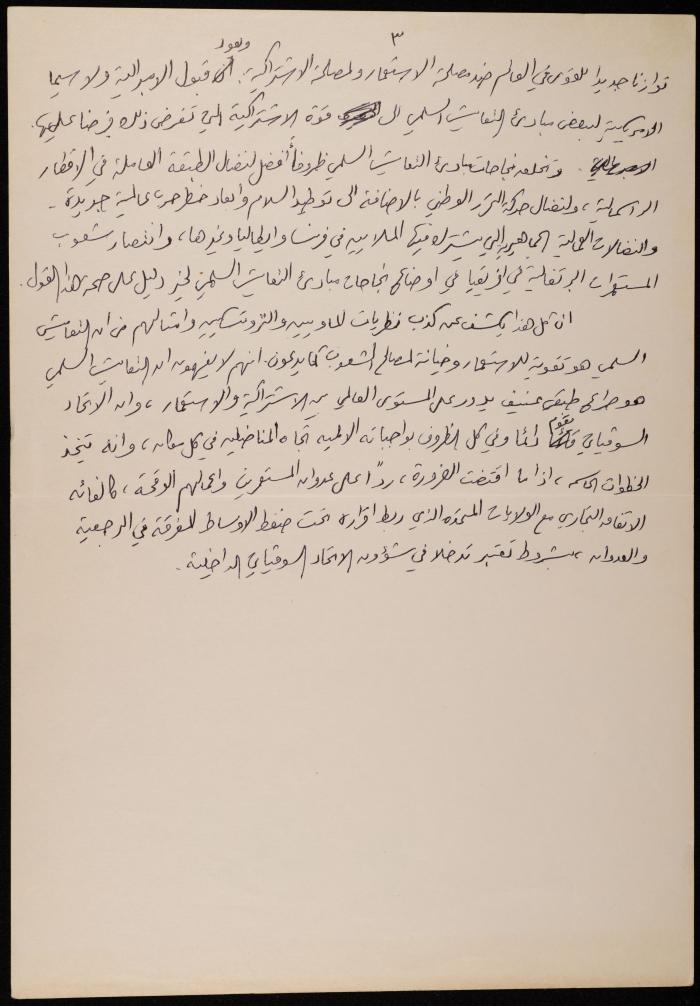 ٣
توازنا جديدا للقوى في العالم ضد مصلحة الاستعمار ولمصلحة الاشتراكية. ويعود قبول الامبريالية ولا سيما
الامريكية لبعض مبادئ التعايش السلمي الى قوة الاشتراكية التي تفرض ذلك فرضا عليها.
وتخلق نجاحات مبادئ التعايش السلمي ظروفاً أفضل لنضال الطبقة العاملة في الاقطار
الرأسمالية، ولنضال حركة التحرر الوطني بالاضافة الى توطيد السلام وابعاد خطر حرب عالمية جديدة.
والنضالات العمالية الجماهيرية التي يشترك فيها الملايين في فرنسا وايطاليا وغيرها، وانتصار شعوب
المستعمرات البرتغالية في افريقيا في اوضاع نجاحات مبادئ التعايش السلمي لخير دليل على صحة هذا القول.
ان كل هذا يكشف عن كذب نظريات الماويين والتروتسكيين وامثالهم من ان التعايش
السلمي هو تقوية للاستعمار وخيانة لمصالح الشعوب كما يدعون. انهم لا يفهمون ان التعايش السلمي
هو صراع طبقي عنيف يدور على المستوى العالمي بين الاشتراكية والاستعمار، وان الاتحاد
السوفياتي يقوم دائما وفي كل الظروف بواجباته الاممية تجاه المناضلين في كل مكان، وانه يتخذ
الخطوات الحاسمة، اذا ما اقتضت الضرورة، رداً على عدوان المستعمرين واعمالهم الوقحة، كالغائه
الاتفاق التجاري مع الولايات المتحدة الذي ربط اقراره تحت ضغط الاوساط المغرقة في الرجعية
والعدوان، بشروط تعتبر تدخلا في شؤون الاتحاد السوفياتي الداخلية.